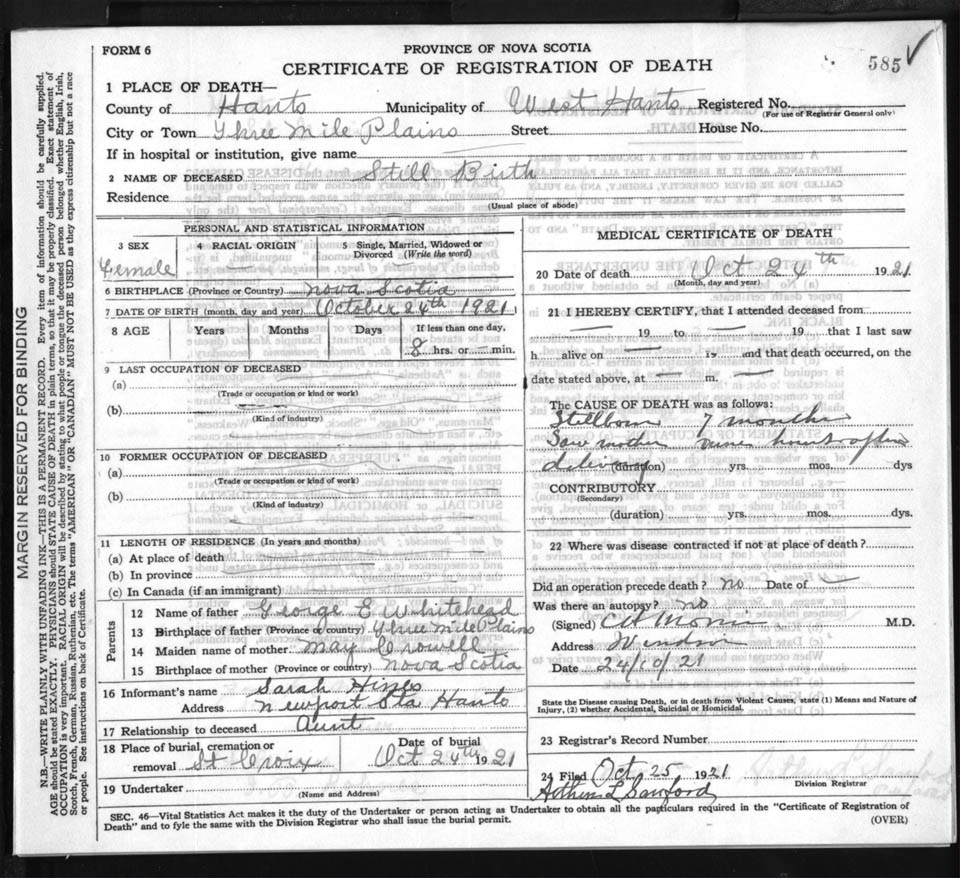 FORM 6
PROVINCE OF NOVA SCOTIA
585 ✓
CERTIFICATE OF REGISTRATION OF DEATH
1 PLACE OF DEATH—
County of Hants Municipality of West Hants Registered No.
(For use of Registrar General only)
City or Town Three Mile Plains Street House No.
If in hospital or institution, give name
2 NAME OF DECEASED Still Birth
Residence
(Usual place of abode)
PERSONAL AND STATISTICAL INFORMATION
3 SEX 4 RACIAL ORIGIN 5 Single, Married, Widowed or Divorced (Write the word)
Female —
6 BIRTHPLACE (Province or Country) Nova Scotia
7 DATE OF BIRTH (month, day and year) October 24th 1921
8 AGE Years Months Days If less than one day,
8 hrs. or — min.
9 LAST OCCUPATION OF DECEASED
(a)
(Trade or occupation or kind of work)
(b)
(Kind of industry)
10 FORMER OCCUPATION OF DECEASED
(a)
(Trade or occupation or kind of work)
(b)
(Kind of industry)
11 LENGTH OF RESIDENCE (In years and months)
(a) At place of death
(b) In province
(c) In Canada (if an immigrant)
Parents
12 Name of father George E Whitehead
13 Birthplace of father (Province or country) Three Mile Plains
14 Maiden name of mother May Crowell
15 Birthplace of mother (Province or country) Nova Scotia
16 Informant's name Sarah Hines
Address Newport Sta Hants
17 Relationship to deceased Aunt
18 Place of burial, cremation or removal St Croix Date of burial Oct 24th 1921
19 Undertaker
(Name and Address)
MEDICAL CERTIFICATE OF DEATH
20 Date of death Oct 24th 1921
(Month, day and year)
21 I HEREBY CERTIFY, that I attended deceased from
— 19 to — 19 that I last saw
h alive on — 19 and that death occurred, on the
date stated above, at — m. —
The CAUSE OF DEATH was as follows:
Stillborn 7 months
Saw mother hours after
delivery (duration) yrs. mos. dys
CONTRIBUTORY
(Secondary)
(duration) yrs. mos. dys.
22 Where was disease contracted if not at place of death?
Did an operation precede death? no Date of —
Was there an autopsy? no
(Signed) M.D.
Address Windsor
Date 24/10/21
State the Disease causing Death, or in death from Violent Causes, state (1) Means and Nature of
Injury, (2) whether Accidental, Suicidal or Homicidal.
23 Registrar's Record Number
24 Filed Oct 25 1921
Arthur L Sanford Division Registrar
SEC. 46—Vital Statistics Act makes it the duty of the Undertaker or person acting as Undertaker to obtain all the particulars required in the "Certificate of Registration of
Death" and to fyle the same with the Division Registrar who shall issue the burial permit.
(OVER)
MARGIN RESERVED FOR BINDING
N.B.—WRITE PLAINLY WITH UNFADING INK—THIS IS A PERMANENT RECORD. Every item of information should be carefully supplied.
AGE should be stated EXACTLY. PHYSICIANS should STATE CAUSE OF DEATH in plain terms, so that it may be properly classified. Exact statement of
OCCUPATION is very important. RACIAL ORIGIN will be described by stating to what people or tongue the deceased person belonged whether English, Irish,
Scotch, French, German, Russian, Ruthenian, etc. The terms "AMERICAN" OR "CANADIAN" MUST NOT BE USED as they express citizenship but not a race
or people. See instructions on back of Certificate.